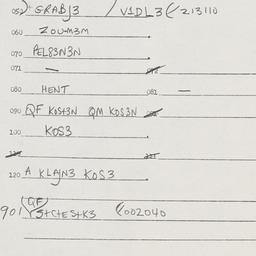 052 GRABJ3 / V1DL3 213110
060 ZOUM3M
070 PEL83N3N
071 —
080 HENT 081 —
090 QF KOSt3N QM KOS3N
100 KOS3
120 A KLAJN3 KOS3
901 QF StCtEStK3 002040